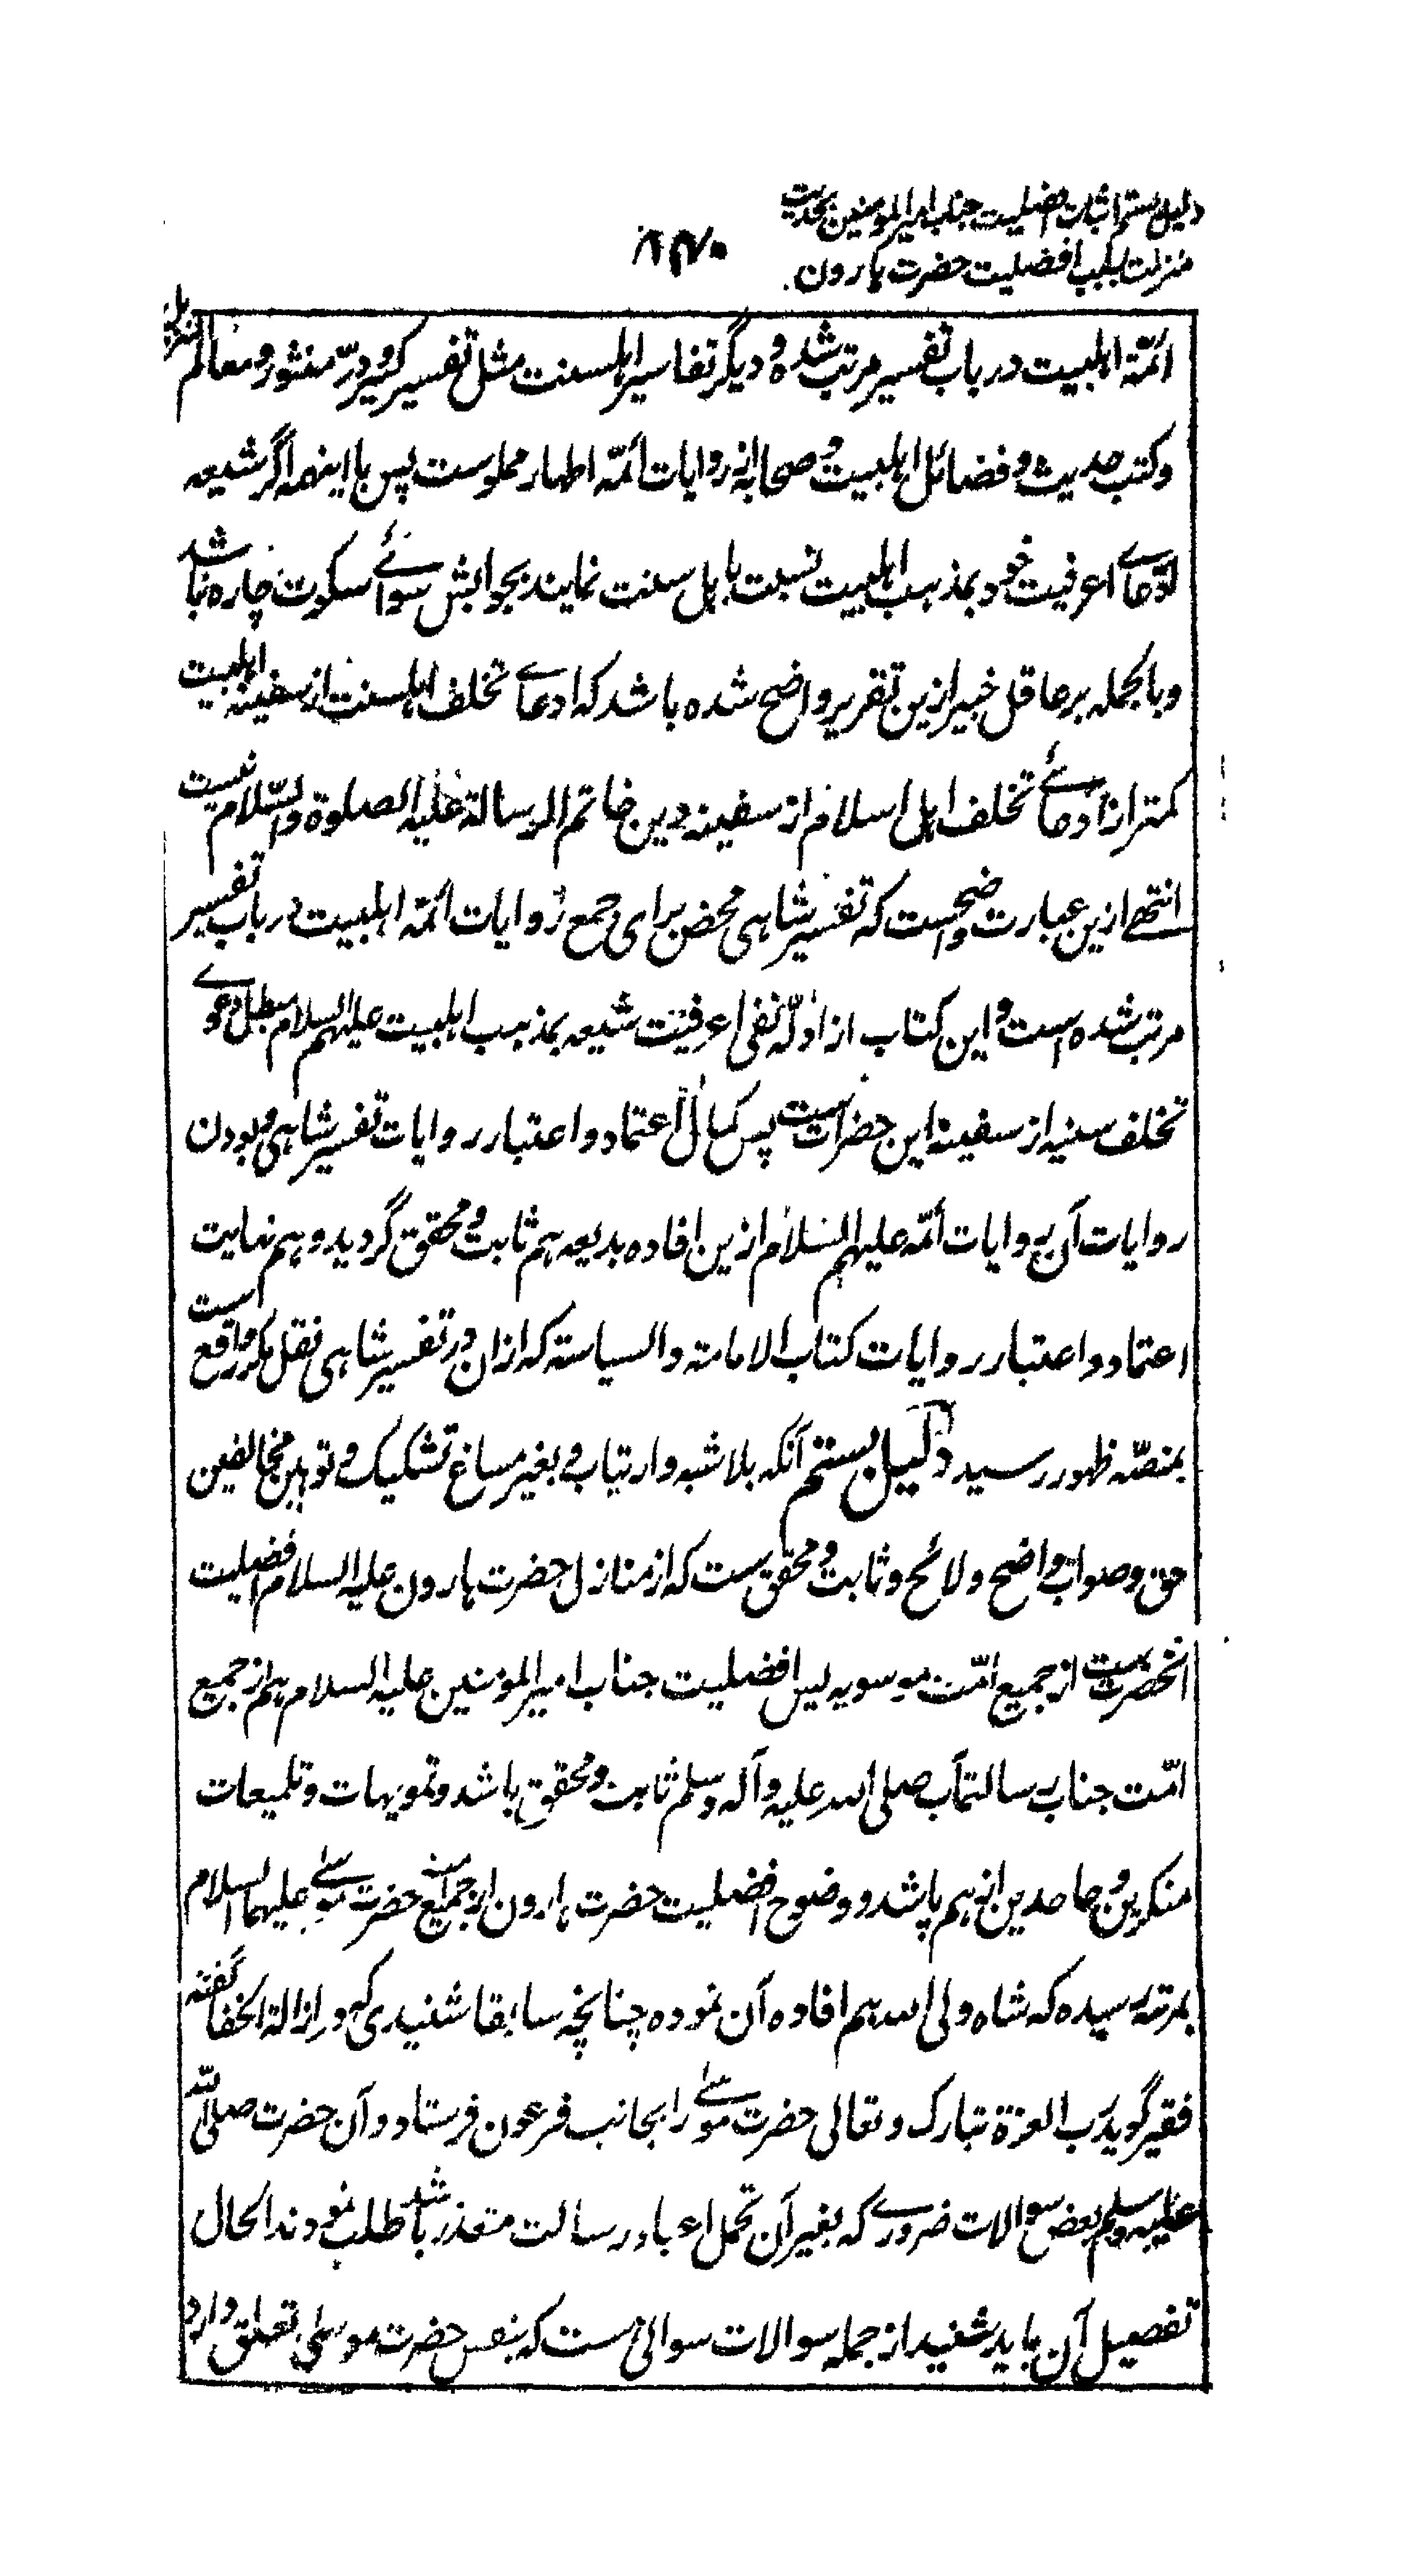 دلیل بستم اثبات افضلیت جناب امیرالمومنین بحدیث
منزلت بسبب افضلیت حضرت هارون
ائمّهٔ اهلبیت در باب تفسیر مرتب شده و دیگر تفاسیر اهلسنت مثل تفسیر کبیر و درّ منثور و معالم التنزیل
و کتب حدیث و فضائل اهلبیت و صحابه از روایات ائمّه اطهار مملوست پس با اینهمه اگر شیعه
ادّعاے اعرفیت خود بمذهب اهلبیت نسبت باهل سنت نمایند بجوابش سوائے سکوت چاره نباشد
و بالجمله بر عاقل خبیر ازین تقریر واضح شده باشد که ادعاے تخلف اهلسنت از سفینه اهلبیت
کمتر از ادّعائے تخلف اهل اسلام از سفینه دین خاتم الرسالة علیه الصلوة والسّلام نیست
انتهے ازین عبارت واضحست که تفسیر شاهی محض برای جمع روایات ائمّه اهلبیت در باب تفسیر
مرتب شده است و این کتاب از ادلّه نفی اعرفیّت شیعه بمذهب اهلبیت علیهم السلام مبطل دعوے
تخلف سنیه از سفینه این حضراتست پس کمال اعتماد و اعتبار روایات تفسیر شاهی و بودن
روایات آن روایات ائمّه علیهم السّلام ازین افاده بدیعه هم ثابت و محقق گردید و هم نهایت
اعتماد و اعتبار روایات کتاب الامامته والسیاسته که ازان در تفسیر شاهی نقل مکرر واقع است
بمنصّه ظهور رسید دلیل بستم آنکه بلا شبه و ارتیاب و بغیر مساغ تشکیک و توهین مخالفین
حق و صواب واضح و لائح و ثابت و محقق ست که از منازل حضرت هارون علیه السلام افضلیت
آنحضرت ست از جمیع امّت موسویه پس افضلیت جناب امیرالمؤمنین علیه السلام هم از جمیع
امّت جناب رسالتمآب صلی الله علیه و آله و سلم ثابت و محقق باشد و تمویهات و تلمیعات
منکرین و جاحدین از هم پاشد و وضوح افضلیت حضرت هارون از جمیع امت حضرت موسے علیهما السلام
بمرتبه رسیده که شاه ولی الله هم افاده آن نموده چنانچه سابقا شنیدی که در ازالة الخفا گفته
فقیر گوید رب العزة تبارک و تعالی حضرت موسے را بجانب فرعون فرستاد و آن حضرت صلی الله
علیه وسلم بعض سوالات ضرورے که بغیر آن تحمل اعباء رسالت متعذر باشد طلب نمودند الحال
تفصیل آن باید شنید از جمله سوالات سوالی ست که بنفس حضرت موسی تعلق دارد